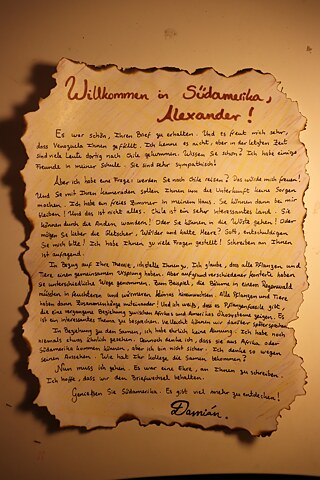 Willkommen in Südamerika,
Alexander!
Es war schön, Ihren Brief zu erhalten. Und es freut mich sehr,
dass Venezuela Ihnen gefällt. Ich kenne es nicht, aber in der letzten Zeit
sind viele Leute dortig nach Chile gekommen. Wissen Sie schon? Ich habe einige
Freunde in meiner Schule. Sie sind sehr sympathisch!
Aber ich habe eine Frage: werden Sie nach Chile reisen? Das würde mich freuen!
Und Sie mit Ihren Kameraden sollen Ihnen um die Unterkunft keine Sorgen
machen. Ich habe ein freies Zimmer in meinem Haus. Sie können dann bei mir
bleiben! Und das ist nicht alles. Chile ist ein sehr interessantes Land. Sie
können durch die Anden wandern! Oder Sie können in die Wüste gehen! Oder
mögen Sie lieber die Gletscher, Wälder und kalte Meere? Gott, entschuldigen
Sie mich bitte! Ich habe Ihnen zu viele Fragen gestellt! Schreiben an Ihnen
ist aufregend.
In Bezug auf Ihre Theorie, ich stelle Ihnen zu. Ich glaube, dass alle Pflanzen und
Tiere einen gemeinsamen Ursprung haben. Aber aufgrund verschiedener Faktoren haben
sie unterschiedliche Wege genommen. Zum Beispiel, die Bäume in einem Regenwald
müssen in feuchteren und wärmeren Klimas klarkommen. Alle Pflanzen und Tiere
haben dann Zusammenhänge miteinander! Und ich weiß, dass es Pflanzenfossile gibt,
die eine vergangene Beziehung zwischen Afrikas und Amerikas Ökosysteme zeigen. Es
ist ein interessantes Thema zu besprechen. Vielleicht können wir darüber später sprechen.
In Beziehung zu den Samen, ich habe ehrlich keine Ahnung. Ich habe noch
niemals etwas Ähnlich gesehen. Dennoch denke ich, dass sie aus Afrika oder
Südamerika kommen können, aber ich bin nicht sicher. Ich denke so wegen
seinem Aussehen. Wie hat Ihr Kollege die Samen bekommen?
Nun muss ich gehen. Es war eine Ehre, an Ihnen zu schreiben.
Ich hoffe, dass wir den Briefwechsel behalten.
Genießen Sie Südamerika. Es gibt viel mehr zu entdecken!
Damián.